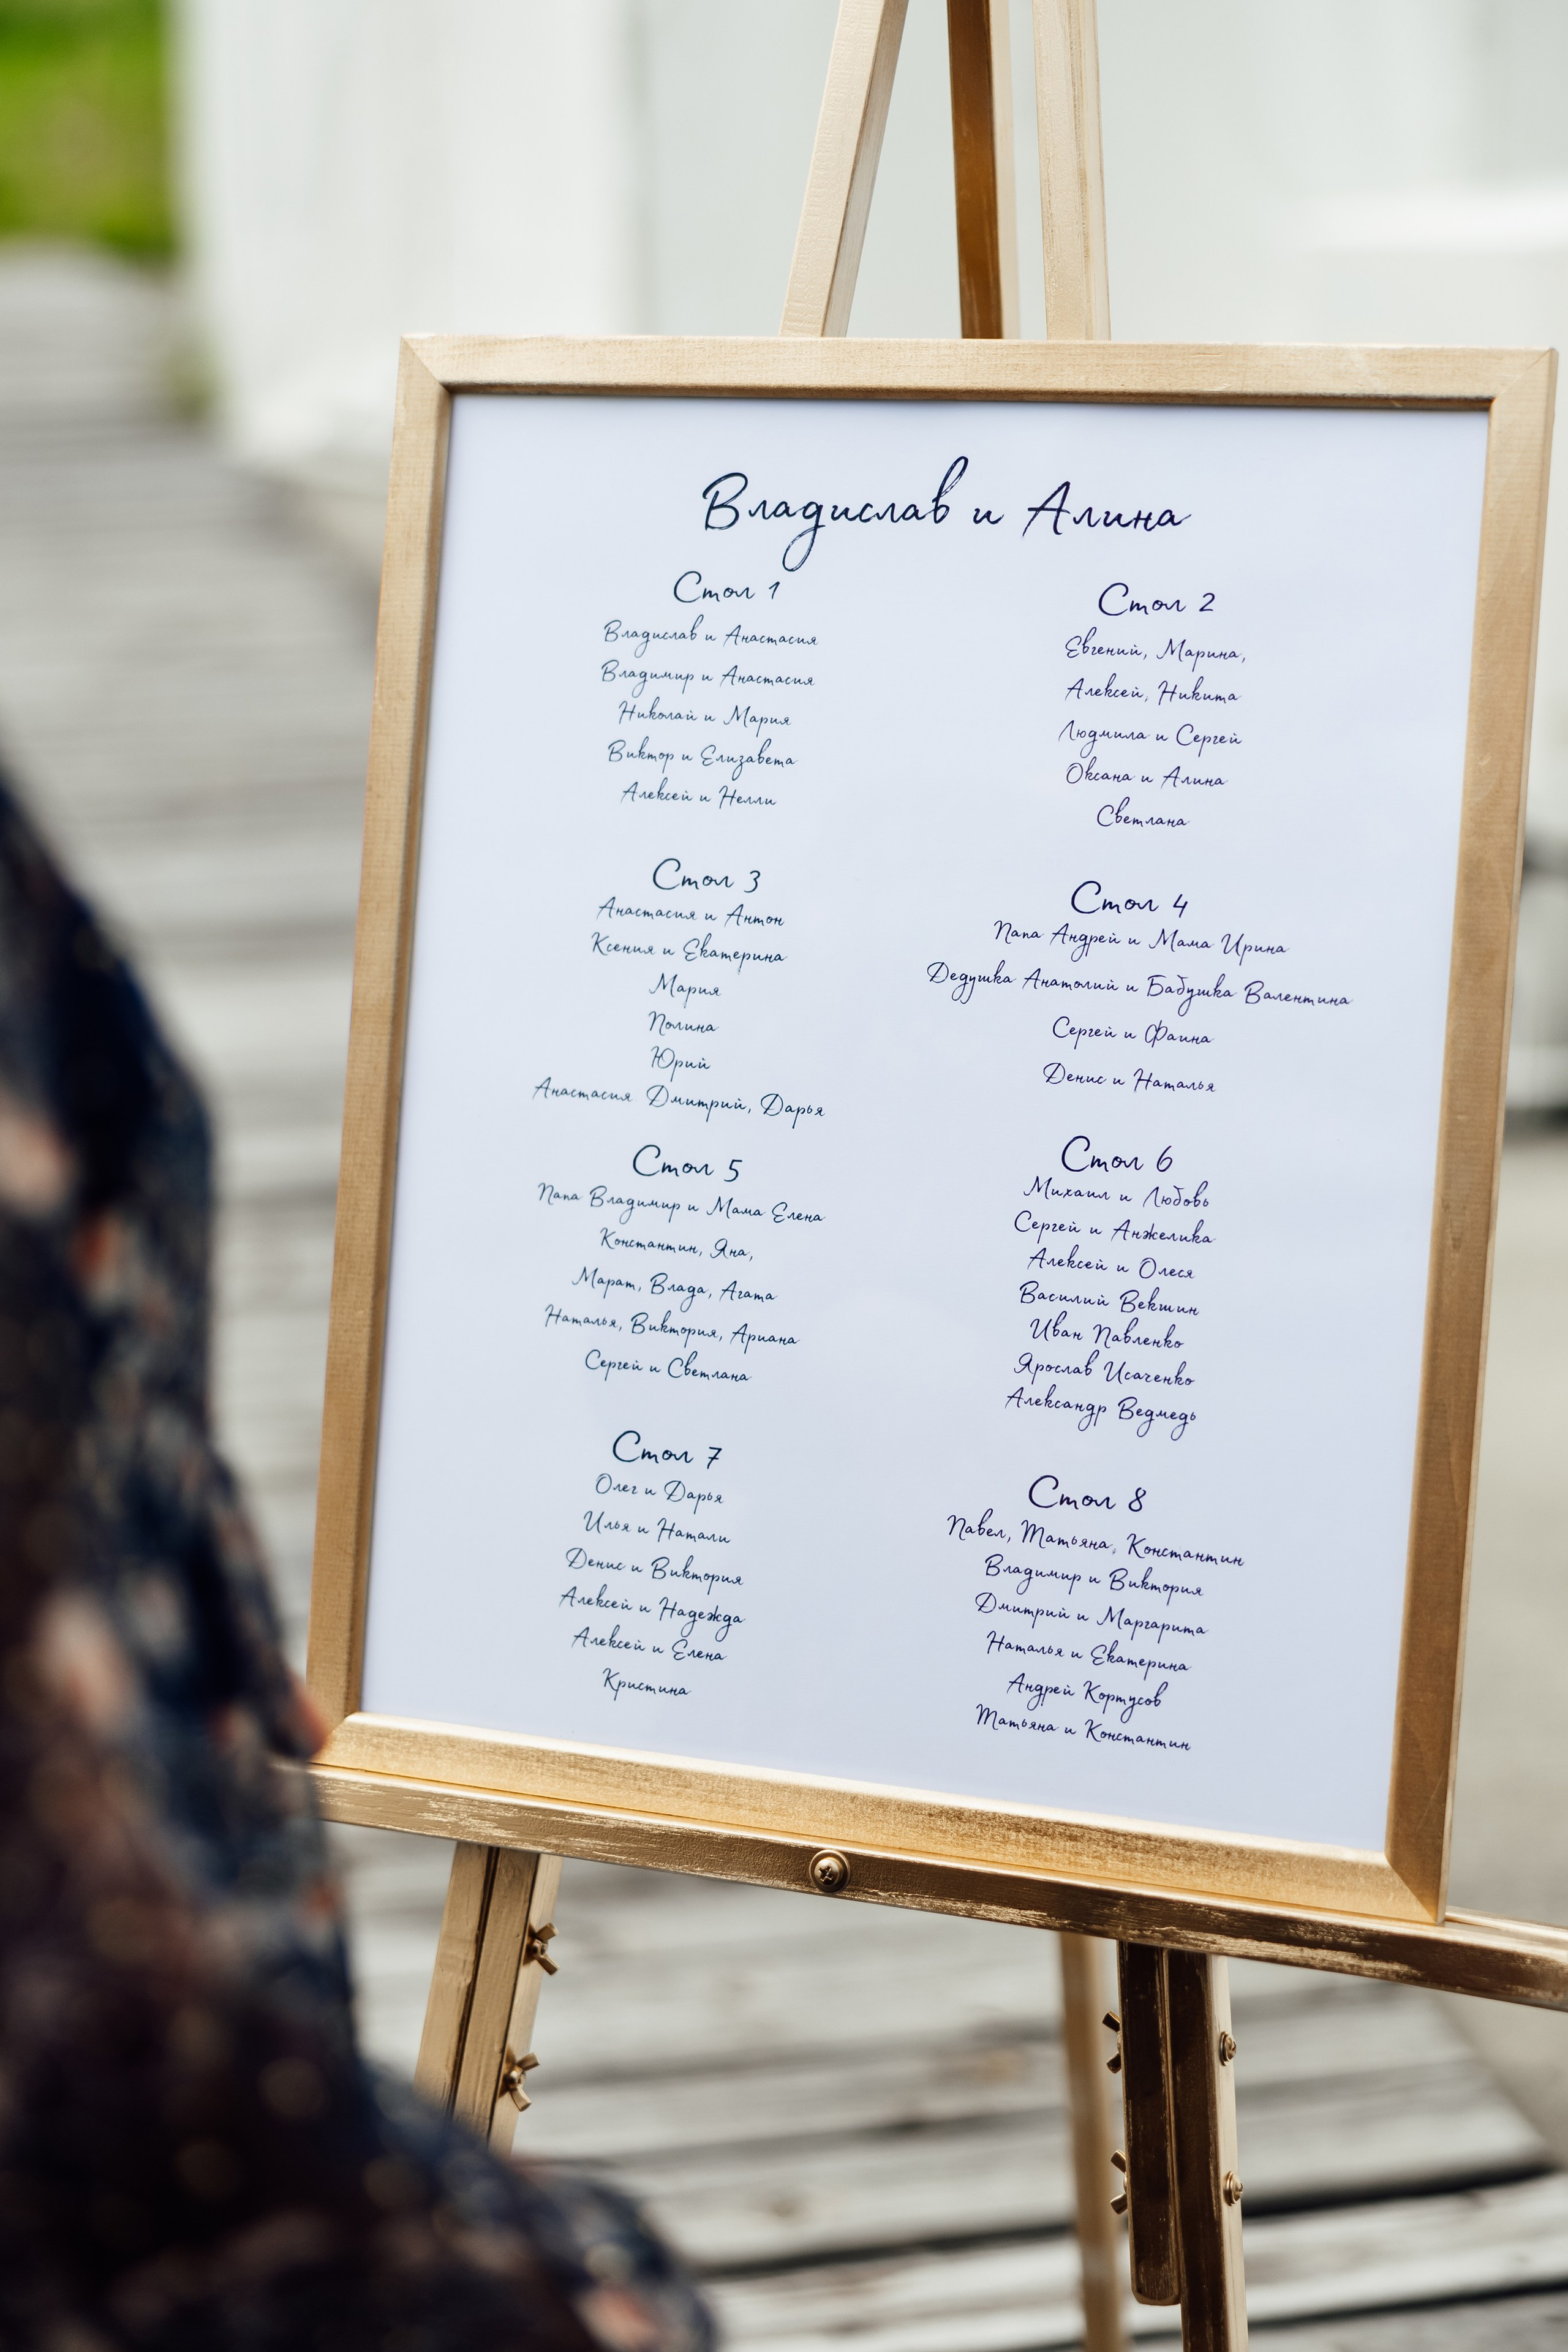 Владислав и Алина
Стол 1
Владислав и Анастасия
Владимир и Анастасия
Николай и Мария
Виктор и Елизавета
Алексей и Нелли
Стол 2
Евгений, Марина,
Алексей, Никита
Людмила и Сергей
Оксана и Алина
Светлана
Стол 3
Анастасия и Антон
Ксения и Екатерина
Мария
Полина
Юрий
Анастасия Дмитрий, Дарья
Стол 4
Папа Андрей и Мама Ирина
Дедушка Анатолий и Бабушка Валентина
Сергей и Фаина
Денис и Наталья
Стол 5
Папа Владимир и Мама Елена
Константин, Яна,
Марат, Влада, Агата
Наталья, Виктория, Ариана
Сергей и Светлана
Стол 6
Михаил и Любовь
Сергей и Анжелика
Алексей и Олеся
Василий Векшин
Иван Павленко
Ярослав Исаченко
Александр Ведмедь
Стол 7
Олег и Дарья
Илья и Натали
Денис и Виктория
Алексей и Надежда
Алексей и Елена
Кристина
Стол 8
Павел, Татьяна, Константин
Владимир и Виктория
Дмитрий и Маргарита
Наталья и Екатерина
Андрей Кортусов
Татьяна и Константин